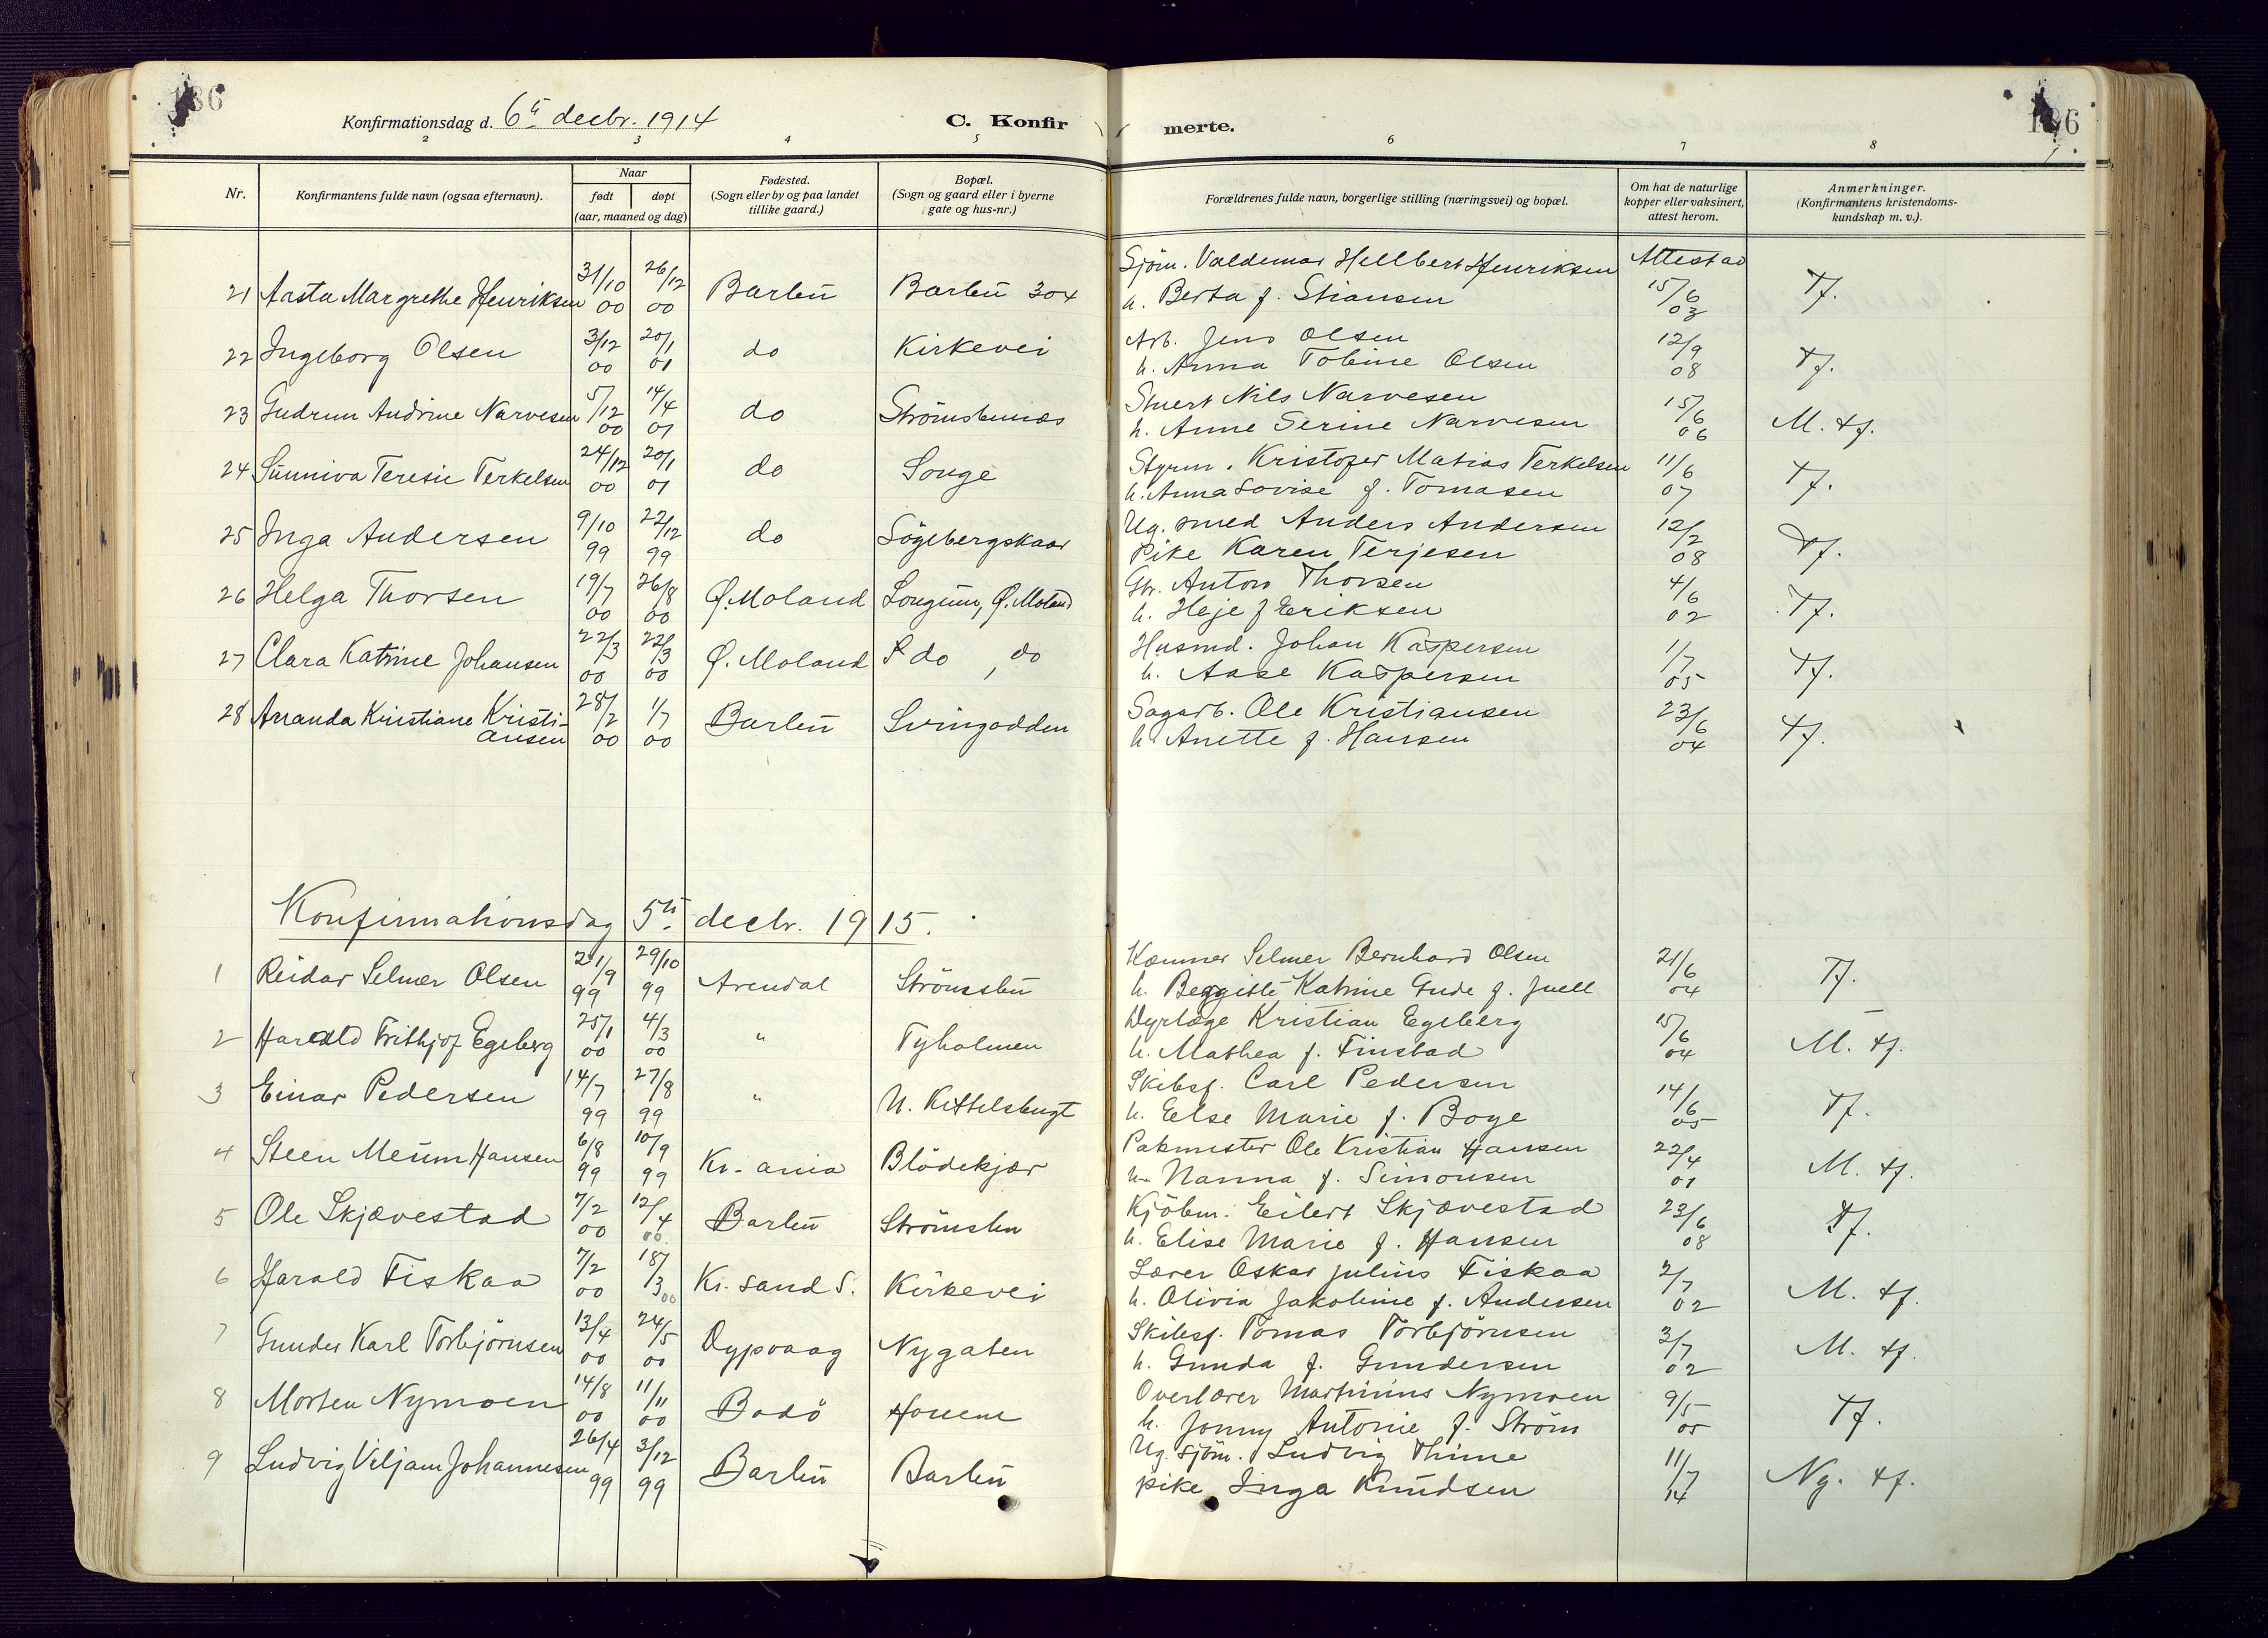 136
Konfirmationsdag d. 6te decbr. 1914
C. Konfir
merte.
136
2 3 4 5 6 7 8
Nr.
Konfirmantens fulde navn (ogsaa efternavn).
Naar
født døpt
(aar, maaned og dag)
Fødested.
(Sogn eller by og paa landet
tillike gaard.)
Bopæl.
(Sogn og gaard eller i byerne
gate og hus-nr.)
Forældrenes fulde navn, borgerlige stilling (næringsvei) og bopæl.
Om hat de naturlige
kopper eller vaksinert,
attest herom.
Anmerkninger.
(Konfirmantens kristendoms-
kundskap m. v.).
21 Aasta Margrethe Henriksen 31/10 00 26/12 00 Barbu Barbu 304 Sjöm. Valdemar Hellbert Henriksen Attest ad
h. Berta f. Stiansen 15/6 03 Tf.
22 Ingeborg Olsen 3/12 00 20/1 01 do Kirkevei Arb. Jens Olsen
h. Anna Tobine Olsen 12/9 08 Tf.
23 Gudrun Andrine Narvesen 5/12 00 14/4 01 do Strömsbunæs Stuert Nils Narvesen
h. Anne Serine Narvesen 15/6 06 M. tf.
24 Sunniva Teresie Terkelsen 24/12 00 20/1 01 do Songe Styrm. Kristofer Matias Terkelsen
h. Anna Lovise f. Tomasen 11/6 07 Tf.
25 Inga Andersen 9/10 99 22/12 99 do Sögebergskaar Ug. smed Anders Andersen
Pike Karen Terjesen 12/2 08 Tf.
26 Helga Thorsen 19/7 00 26/8 00 Ø. Moland Longum, Ø. Moland Gbr. Anton Thorsen
h. Heje f Eriksen 4/6 02 Tf.
27 Clara Katrine Johansen 22/3 00 22/3 00 Ø. Moland do, do Husmd. Johan Kaspersen
h. Aase Kaspersen 1/7 05 Tf.
28 Amanda Kristiane Kristi-
ansen 28/2 00 1/7 00 Barbu Svingodden Sagarb. Ole Kristiansen
h. Anette f. Hansen 23/6 04 Tf.
Konfirmationsdag 5te decbr. 1915.
1 Reidar Selmer Olsen 21/9 99 29/10 99 Arendal Strömsbu Kæmner Selmer Bernhard Olsen
h. Katrine Gude f. Juell 21/6 04 Tf.
2 Harald Frithjof Egeberg 25/1 00 4/3 00 " Tyholmen Dyrlæge Kristian Egeberg
h. Mathea f. Finstad 15/6 04 M. tf.
3 Einar Pedersen 14/7 99 27/8 99 " N. Kittelsbugt Skibsf. Carl Pedersen
h. Else Marie f. Boye 14/6 05 Tf.
4 Steen Meum Hansen 6/8 99 10/9 99 Kr-ania Blödekjær Pakmester Ole Kristian Hansen
h. Nanna f. Simonsen 22/4 01 M. tf.
5 Ole Skjævestad 7/2 00 12/4 00. Barbu Strömsbu Kjöbm. Eilert Skjævestad
h. Elise Marie f. Hansen 23/6 08 Tf.
6 Harald Fiskaa 7/2 00 18/3 00 Kr. sand S. Kirkevei Lærer Oskar Julius Fiskaa
h. Olivia Jakobine f. Andersen 2/7 02 M. tf.
7 Gunder Karl Torbjörnsen 13/4 00 24/5 00 Dypvaag Nygaten Skibsf. Tomas Torbjörnsen
h. Gunda f. Gundersen 3/7 02 M. tf.
8 Morten Nymoen 14/8 00 11/11 00 Bodö Houene Overlærer Martinius Nymoen
h. Jonny Antonie f. Ström 9/5 05 Tf.
9 Ludvig Viljam Johannesen 26/4 99 3/12 99 Barbu Barbu Ug. sjöm. Ludvig Thime
pike Inga Knudsen 11/7 14 Ng. tf.